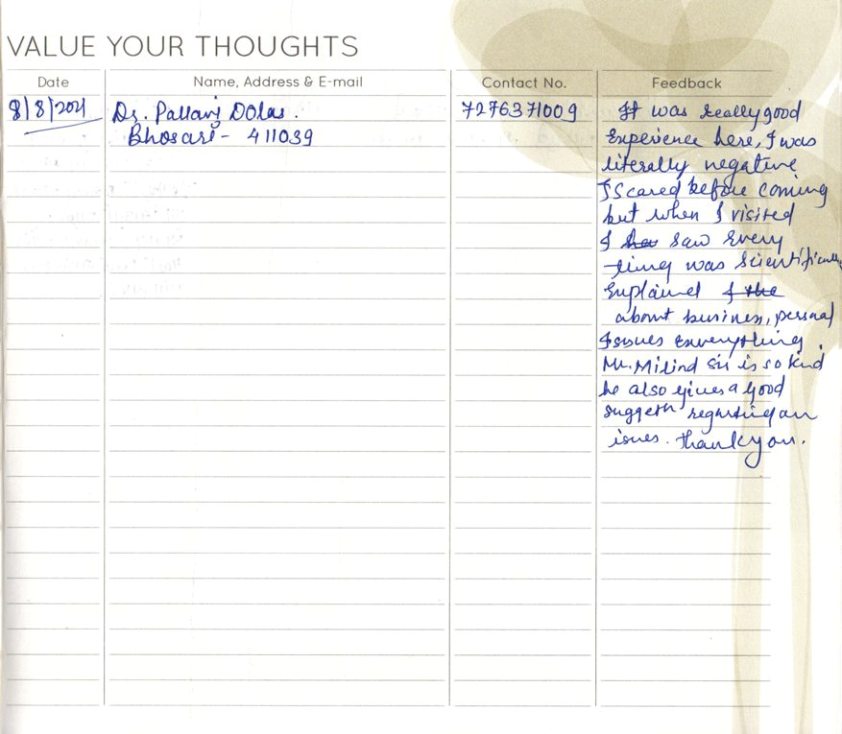 VALUE YOUR THOUGHTS
Date Name, Address & E-mail Contact No. Feedback
8/8/2021 Dr. Pallavi Dolas. 7276371009 It was really good
Bhosari - 411039 Experience here, I was
literally negative
& Scared before coming
but when I visited
I saw Every
ting was scientifically
Explained &
about business, personal
Issues Enverything.
Mr. Milind sir is so kind
he also gives a good
suggetn regarding an
issues. thank you.